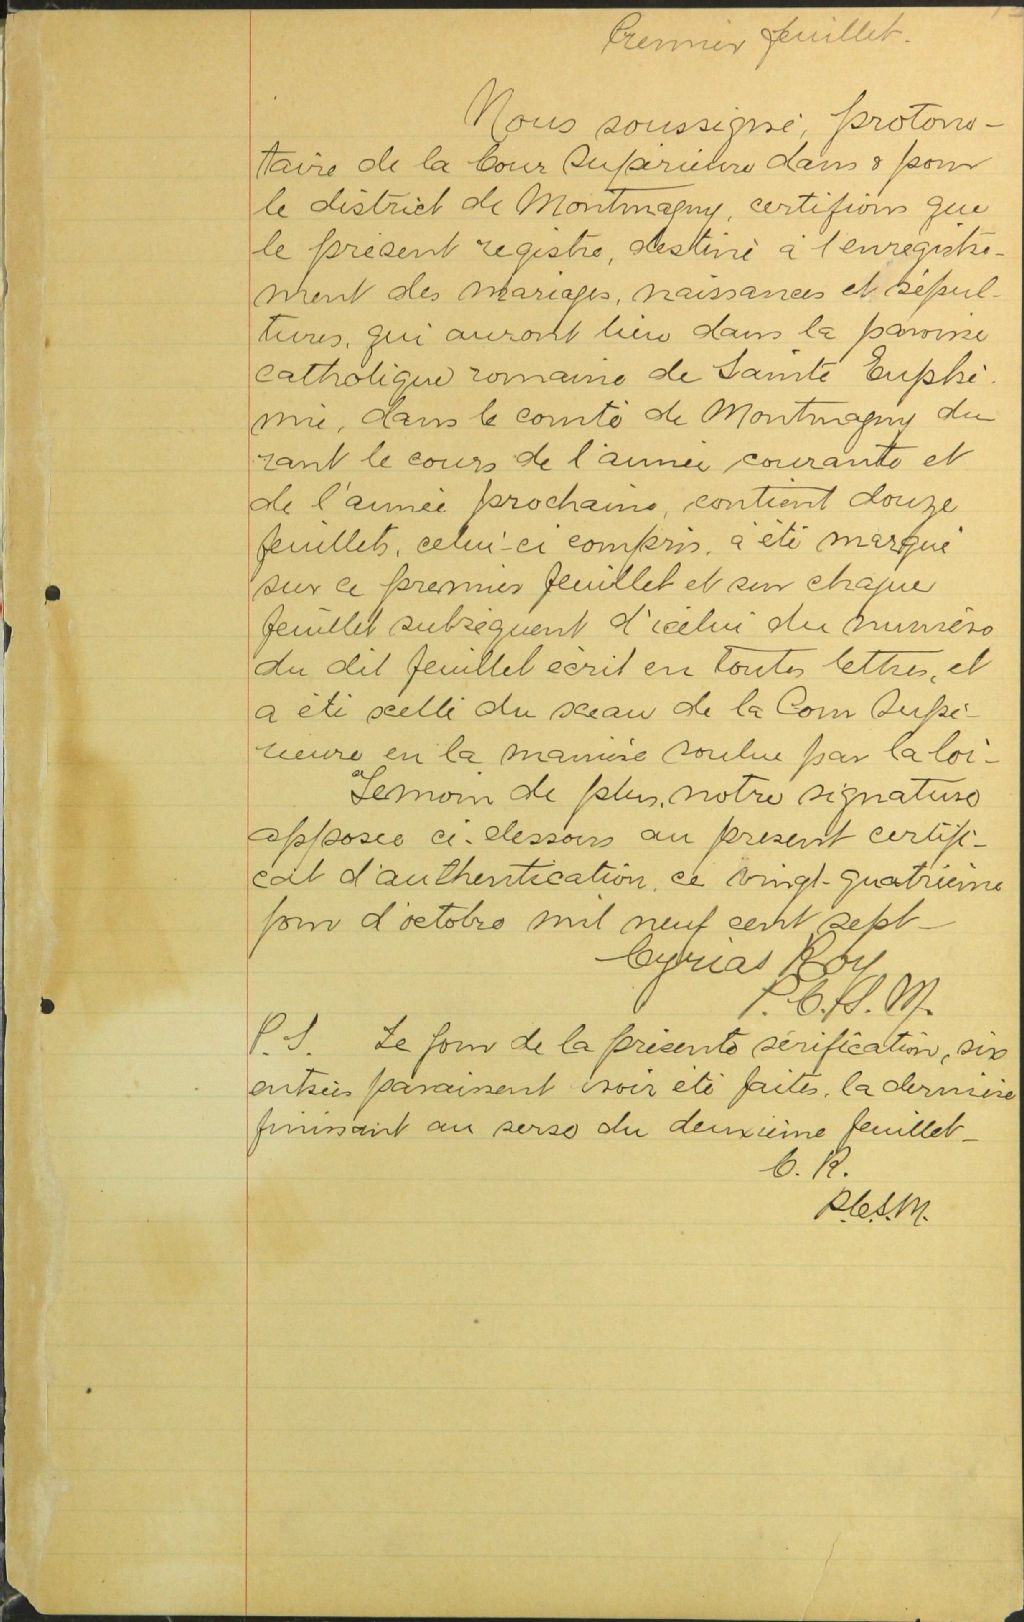 Premier feuillet.
Nous soussigné, protono-
taire de la Cour Supérieure dans & pour
le district de Montmagny, certifions que
le présent registre, destiné à l'enregistre-
ment des mariages, naissances et sépul-
tures, qui auront lieu dans la paroisse
catholique romaine de Sainte Euphé-
mie, dans le comté de Montmagny du
rant le cours de l'année courante et
de l'année prochaine, contient douze
feuillets, celui-ci compris, a été marqué
sur ce premier feuillet et sur chaque
feuillet subséquent d'icelui du numéro
du dit feuillet écrit en toutes lettres, et
a été scellé du sceau de la Cour Supé-
rieure en la manière voulue par la loi-
Témoin de plus, notre signature
apposée ci-dessous au présent certifi-
cat d'authentication, ce vingt-quatrième
jour d'octobre mil neuf cent sept-
Cyrias Roy
P.C.S.M.
P.S. Le jour de la présente vérification, six
entrées paraissent avoir été faites, la dernière
finissant au verso du deuxième feuillet-
C. R.
P.C.S.M.